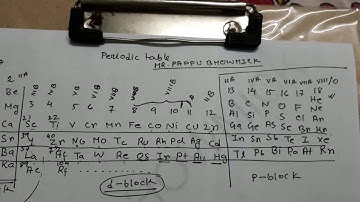 Periodic table
MR. PAPPU BHOWMICK
2 IIA IIIB IVB VB VIB VIIB IB IIB IIIA IVA VA VIA VIIA VIII/0
3 4 5 6 7 8 9 10 11 12 13 14 15 16 17 18
He
Be B C N O F Ne
Mg Al Si P S Cl Ar
Ca Sc Ti V Cr Mn Fe Co Ni Cu Zn Ga Ge As Se Br Kr
Sr Y Zr Nb Mo Tc Ru Rh Pd Ag Cd In Sn Sb Te I Xe
Ba La Hf Ta W Re Os Ir Pt Au Hg Tl Pb Bi Po At Rn
Ra Ac Rf
d-block
P-block